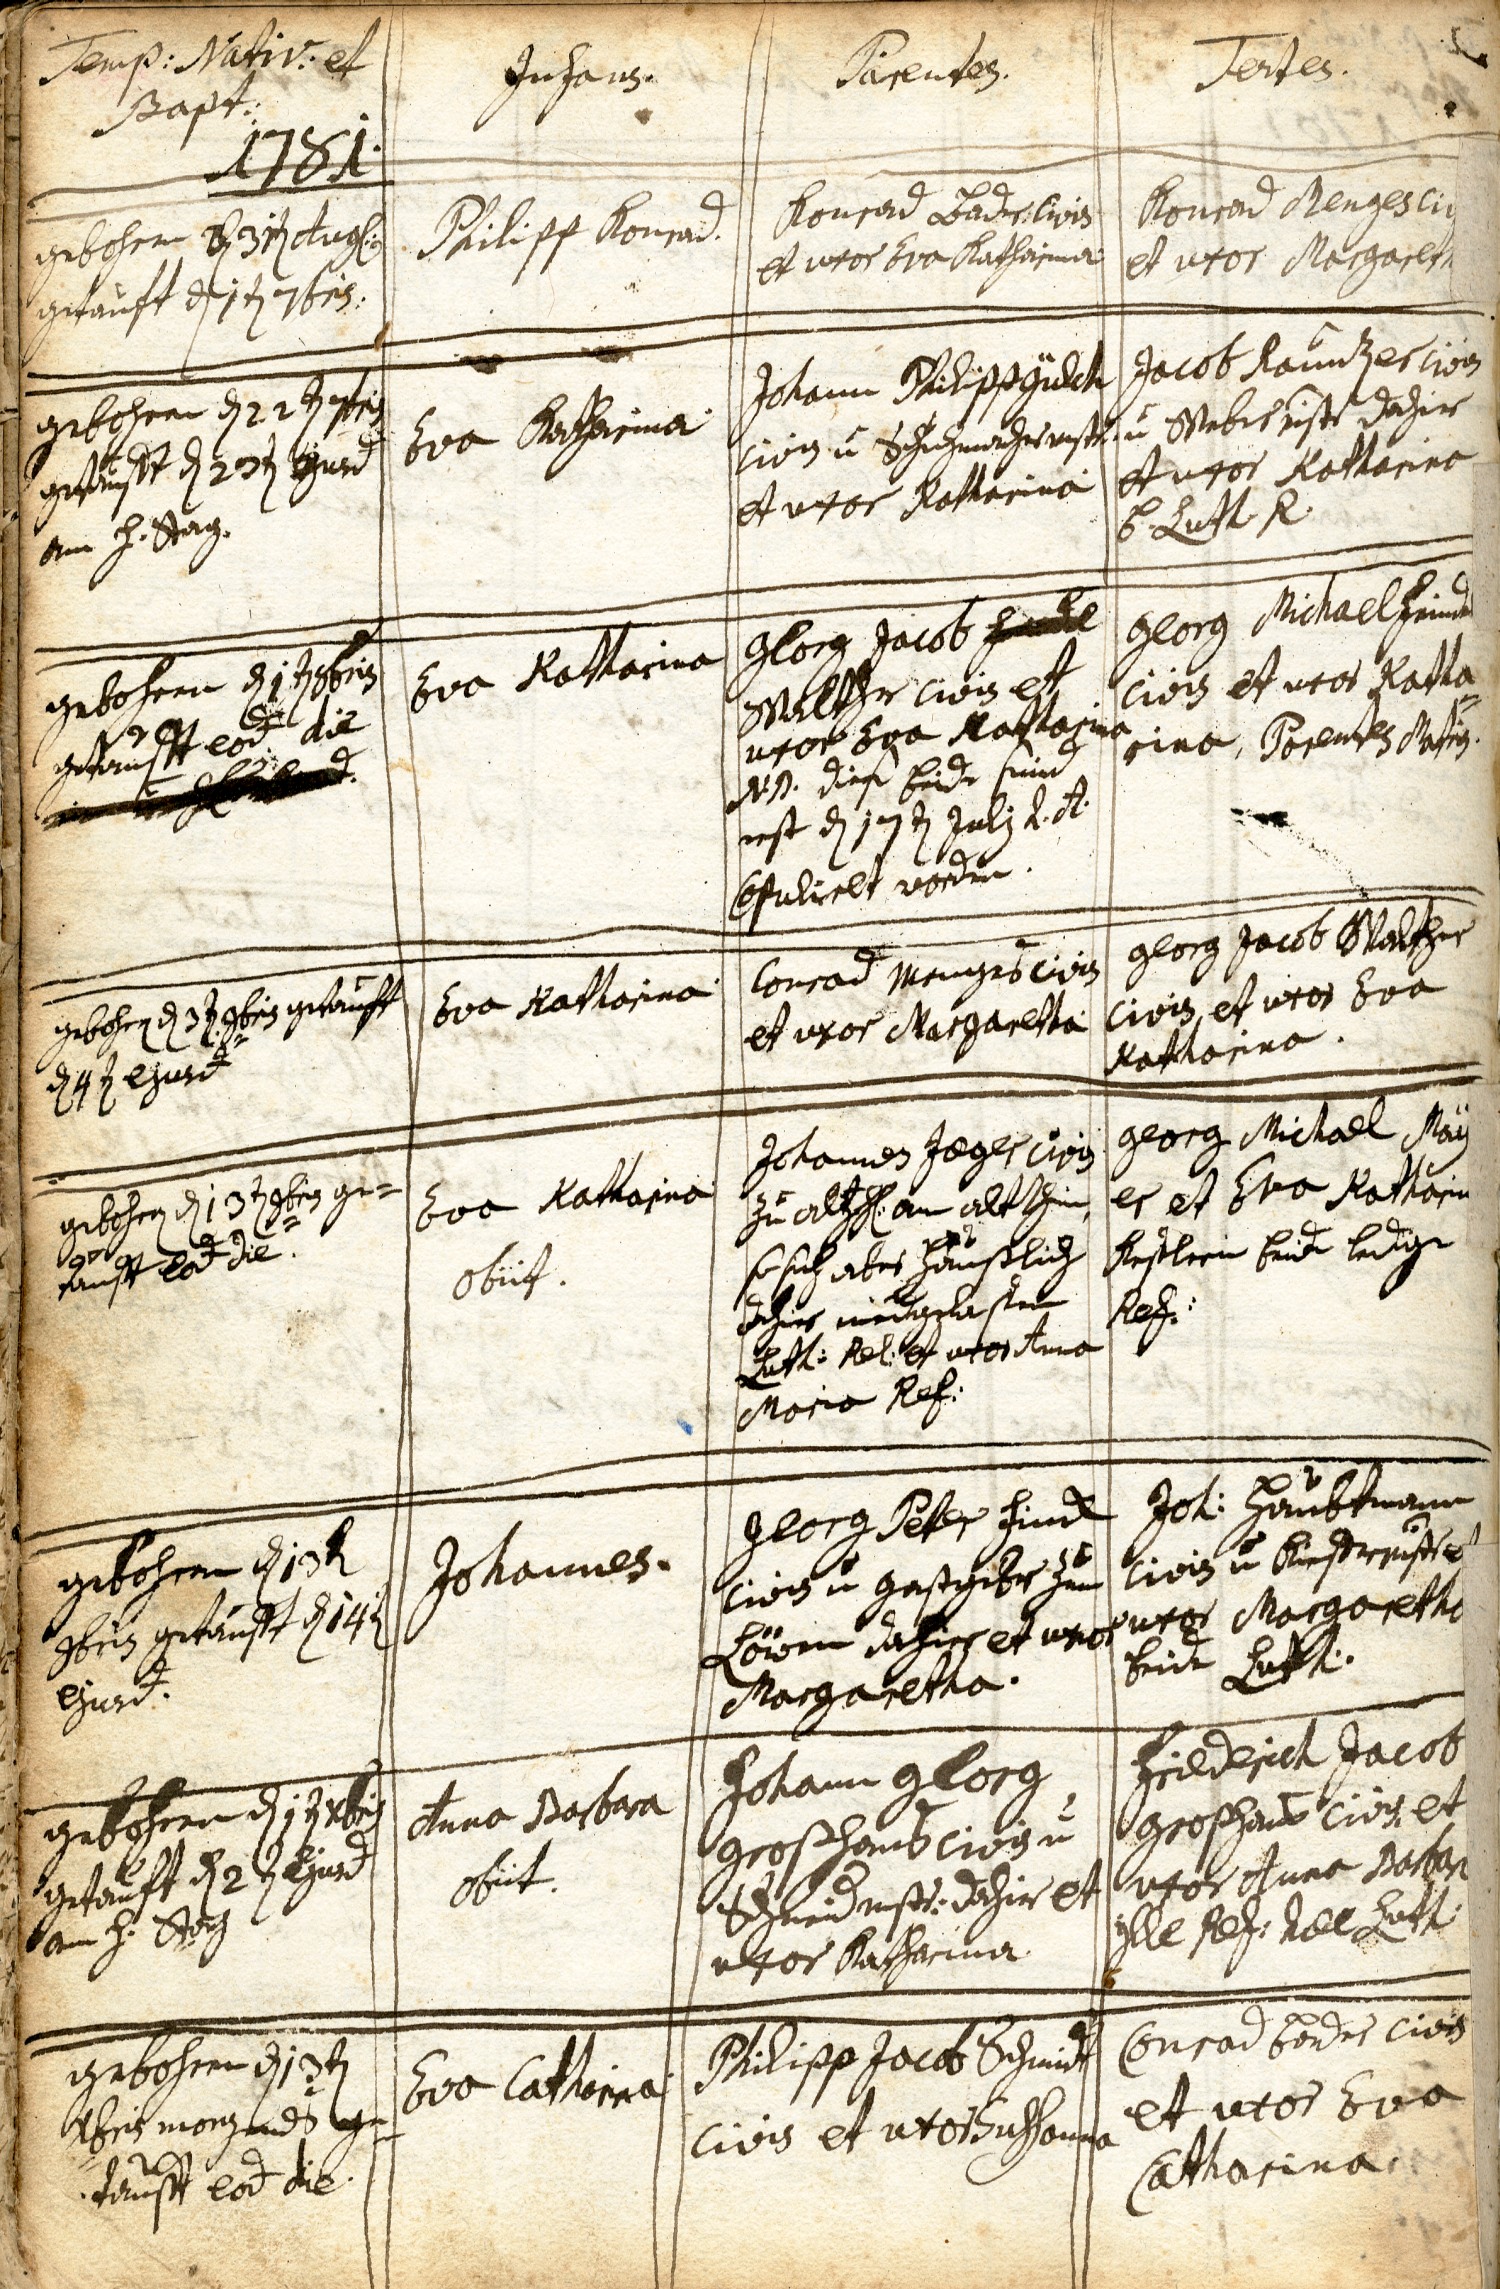 Temp: Nativ: et
Bapt:
1781.
Infans.
Parentes.
Testes.
gebohren d 31t Augst:
getauft d 1t 7bris:
Philipp Konrad.
Konrad Bader civis
et uxor Eva Katharina
Konrad Menges civ
et uxor Margareth
gebohren d 22t 7bris
getaufft d 23t ejusd
am h. Stag.
Eva Katharina
Johann Philipp Gülch
civis u Schuhmachermstr.
et uxor Katharina
Jacob Kauntzer civis
u Weber mstr dahier
et uxor Katharina
b. Luth. R.
gebohren d 1t 8bris
getaufft eod: die
Eva Katharina
Georg Jacob
Walther civis et
uxor Eva Katharina
NB. diese beide sind
erst d 17t July h. A.
Copulirt worden.
Georg Michael
civis et uxor Katha=
rina, Parentes Matris.
gebohrn d 3t 9bris getauft
d 4t ejusd
Eva Katharina
Conrad Menges civis
et uxor Margaretha
Georg Jacob Walther
civis, et uxor Eva
Katharina.
gebohrn d 13t 9bris ge=
taufft eod die.
Eva Katharina
obiit.
Johannes Jæger civis
zu
so sich aber häußlich
dahier niedgelassen
Luth: Rel: et uxor Anna
Maria Ref:
Georg Michael May
er et Eva Katharin
Keßlerin beide ledige
Ref:
gebohren d 13t
9bris getaufft d 14t
ejusd.
Johannes.
Georg Peter Finck
civis u Gastgeber zum
Löwen dahier et uxor
Margaretha.
Joh: Haubtmann
civis u Küefermstr et
uxor Margaretha
beide Luth:
gebohren d 1t Xbris
getauft d 2t Ejusd
am h. Stag
Anna Barbara
obiit.
Johann Georg
Großhans civis u
Schneidmstr: dahier et
uxor Katharina
Friederich Jacob
Großhans civis, et
uxor Anna Barbar
ille Ref: haec Luth:
gebohren d 13t
Xbris morgends ge=
taufft eod die.
Eva Catharina
Philipp Jacob Schmidt
civis et uxor Susanna
Conrad Bader civis
et uxor Eva
Catharina.